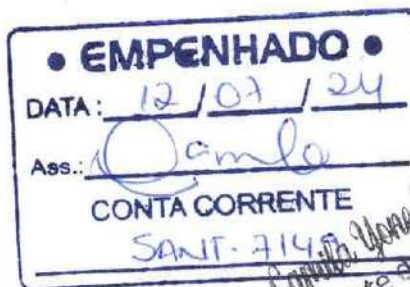 • EMPENHADO •
DATA: 12 / 07 / 24
Ass.: Camila
CONTA CORRENTE
SANT-7149
Camila